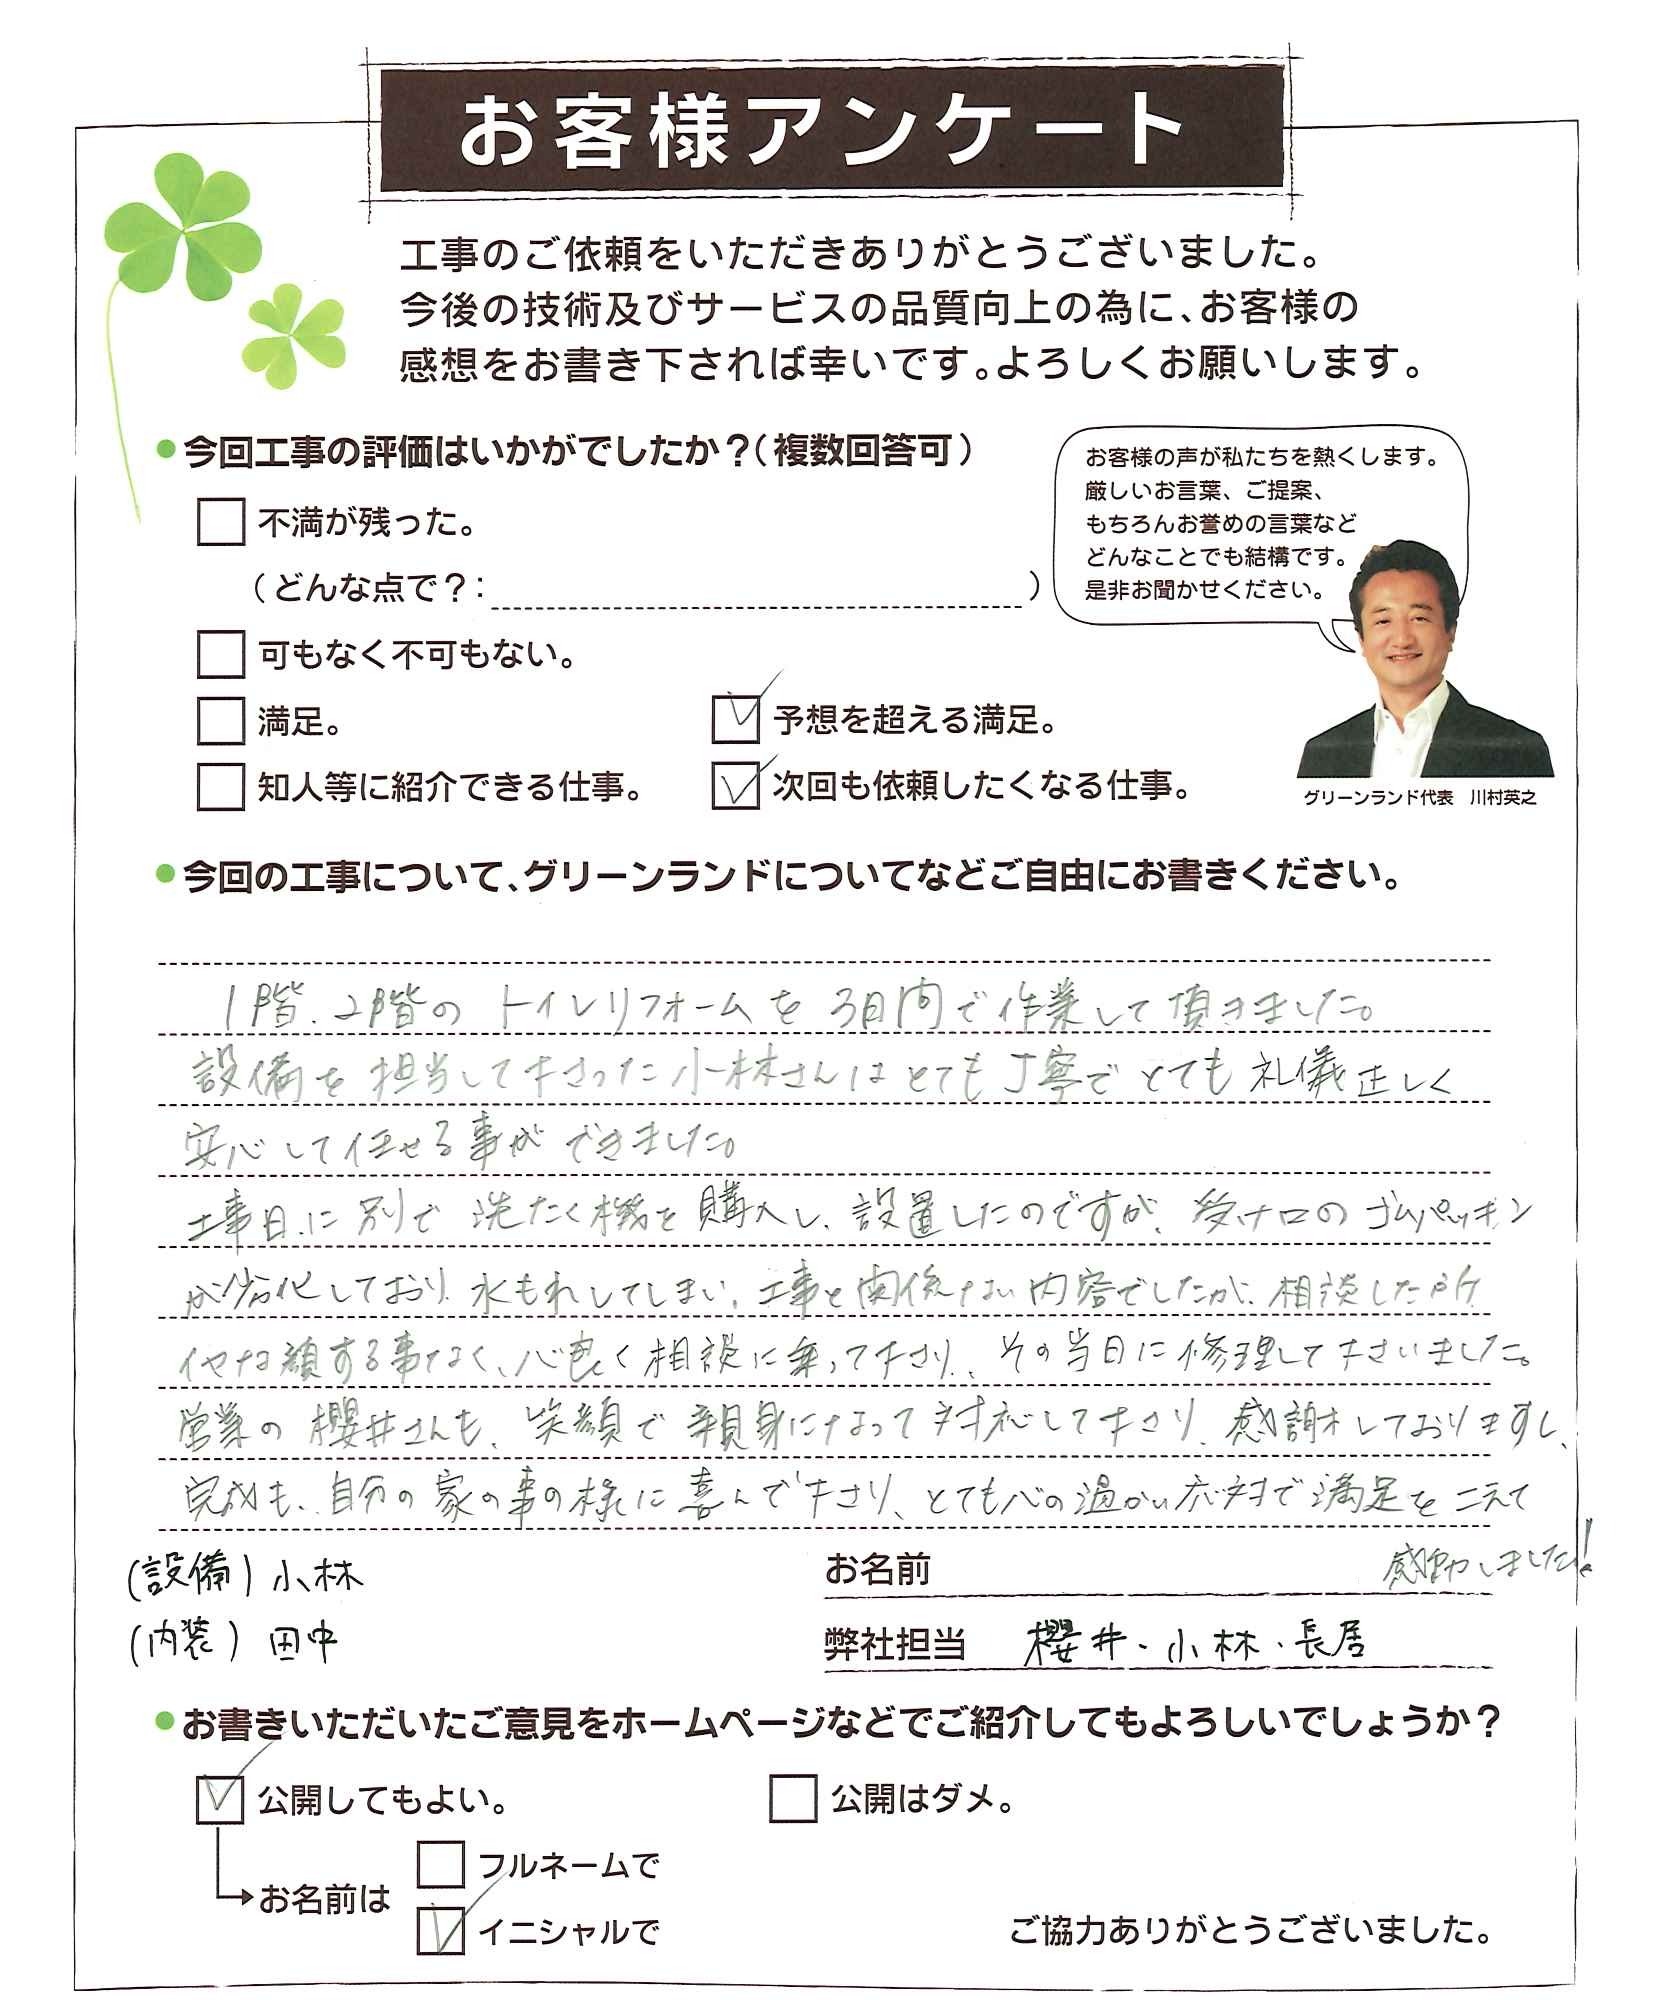 お客様アンケート
工事のご依頼をいただきありがとうございました。
今後の技術及びサービスの品質向上の為に、お客様の
感想をお書き下されば幸いです。よろしくお願いします。
●今回工事の評価はいかがでしたか？（複数回答可）
不満が残った。
（どんな点で？：　　　）
可もなく不可もない。
満足。
予想を超える満足。
知人等に紹介できる仕事。
次回も依頼したくなる仕事。
お客様の声が私たちを熱くします。
厳しいお言葉、ご提案、
もちろんお誉めの言葉など
どんなことでも結構です。
是非お聞かせください。
グリーンランド代表　川村英之
●今回の工事について、グリーンランドについてなどご自由にお書きください。
1階、2階の トイレリフォームを 3日間で作業して頂きました。
設備を担当して下さった小林さんはとても丁寧でとても礼儀正しく
安心して任せる事ができました。
工事日に別で洗たく機を購入し、設置したのですが、受け口のゴムパッキン
が劣化しており水もれしてしまい、工事と関係ない内容でしたが、相談した所
イヤな顔する事なく、心良く相談に乗って下さり、その当日に修理して下さいました。
営業の櫻井さんも、笑顔で親身になって対応して下さり、感謝しておりますし、
完成も、自分の家の事の様に喜んで下さり、とても心の温かい応対で満足をこえて
感動しました！
(設備) 小林
(内装) 田中
お名前
弊社担当　櫻井・小林・長居
●お書きいただいたご意見をホームページなどでご紹介してもよろしいでしょうか？
公開してもよい。
公開はダメ。
お名前は
フルネームで
イニシャルで
ご協力ありがとうございました。